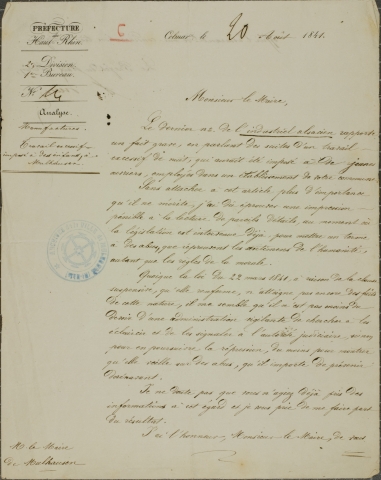 PRÉFECTURE
du
Haut-Rhin
2e Division
1er Bureau
N°
Analyse
Manufactures.
Travail excessif
imposé à des enfants à
Mulhausen
C
Colmar le 20 Août 1841.
Monsieur le Maire,
Le dernier no de l'industriel alsacien, rapporte
un fait grave, en parlant des suites d'un travail
excessif de nuit, qui aurait été imposé à des jeunes
ouvriers, employés dans un établissement de votre commune
Sans attacher à cet article plus d'importance
qu'il ne mérite, j'ai dû éprouver une impression
pénible à la lecture de pareils détails, au moment où
la législation est intervenue déjà, pour mettre un terme
à des abus, que réprouvent les sentimens de l'humanité,
autant que les règles de la morale.
Quoique la loi du 22 mars 1841, à raison de la clause
suspensive, qu'elle renferme, n'atteigne pas encore des faits
de cette nature, il me semble qu'il n'est pas moins du
devoir d'une administration vigilante de chercher à les
éclaircir et de les signaler à l'autorité judiciaire, sinon
pour en poursuivre la répression, du moins pour montrer
qu'elle veille sur des abus, qu'il importe de prévenir
dorénavant.
Je ne doute pas que vous n'ayez déjà pris des
informations à cet égard et je vous prie de me faire part
du résultat.
J'ai l'honneur, Monsieur le Maire, de vous
Mr le Maire
de Mulhausen